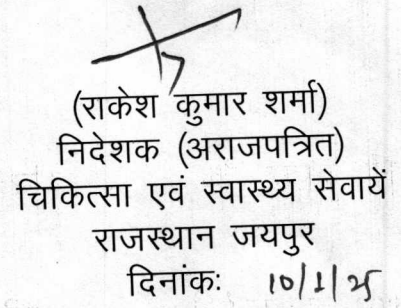 (राकेश कुमार शर्मा)
निदेशक (अराजपत्रित)
चिकित्सा एवं स्वास्थ्य सेवायें
राजस्थान जयपुर
दिनांकः 10/1/25